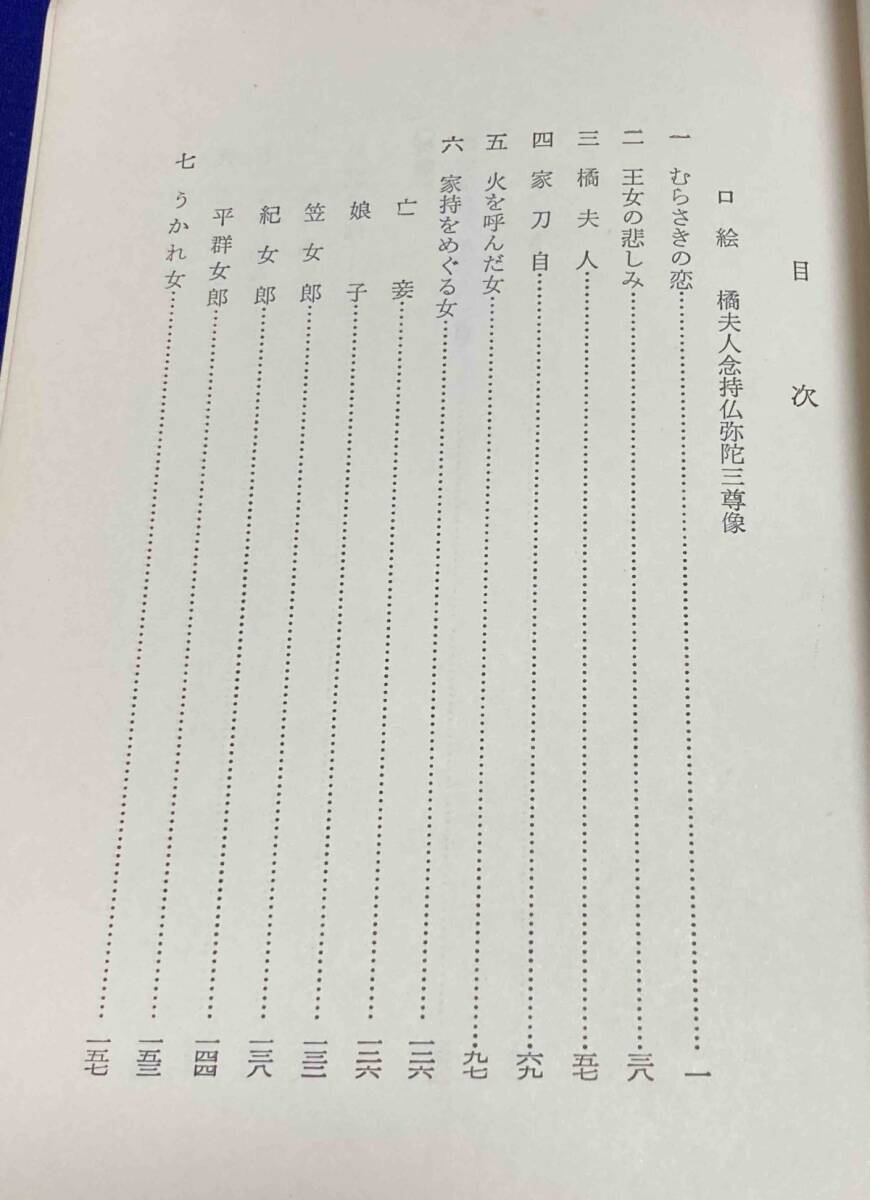 目次
口絵 橘夫人念持仏弥陀三尊像
一 むらさきの恋……一
二 王女の悲しみ……三八
三 橘夫人……五七
四 家刀自……六九
五 火を呼んだ女……九七
六 家持をめぐる女……一二六
亡妾……一二六
娘子……一三二
笠女郎……一三八
紀女郎……一四四
平群女郎……一五三
七 うかれ女……一五七